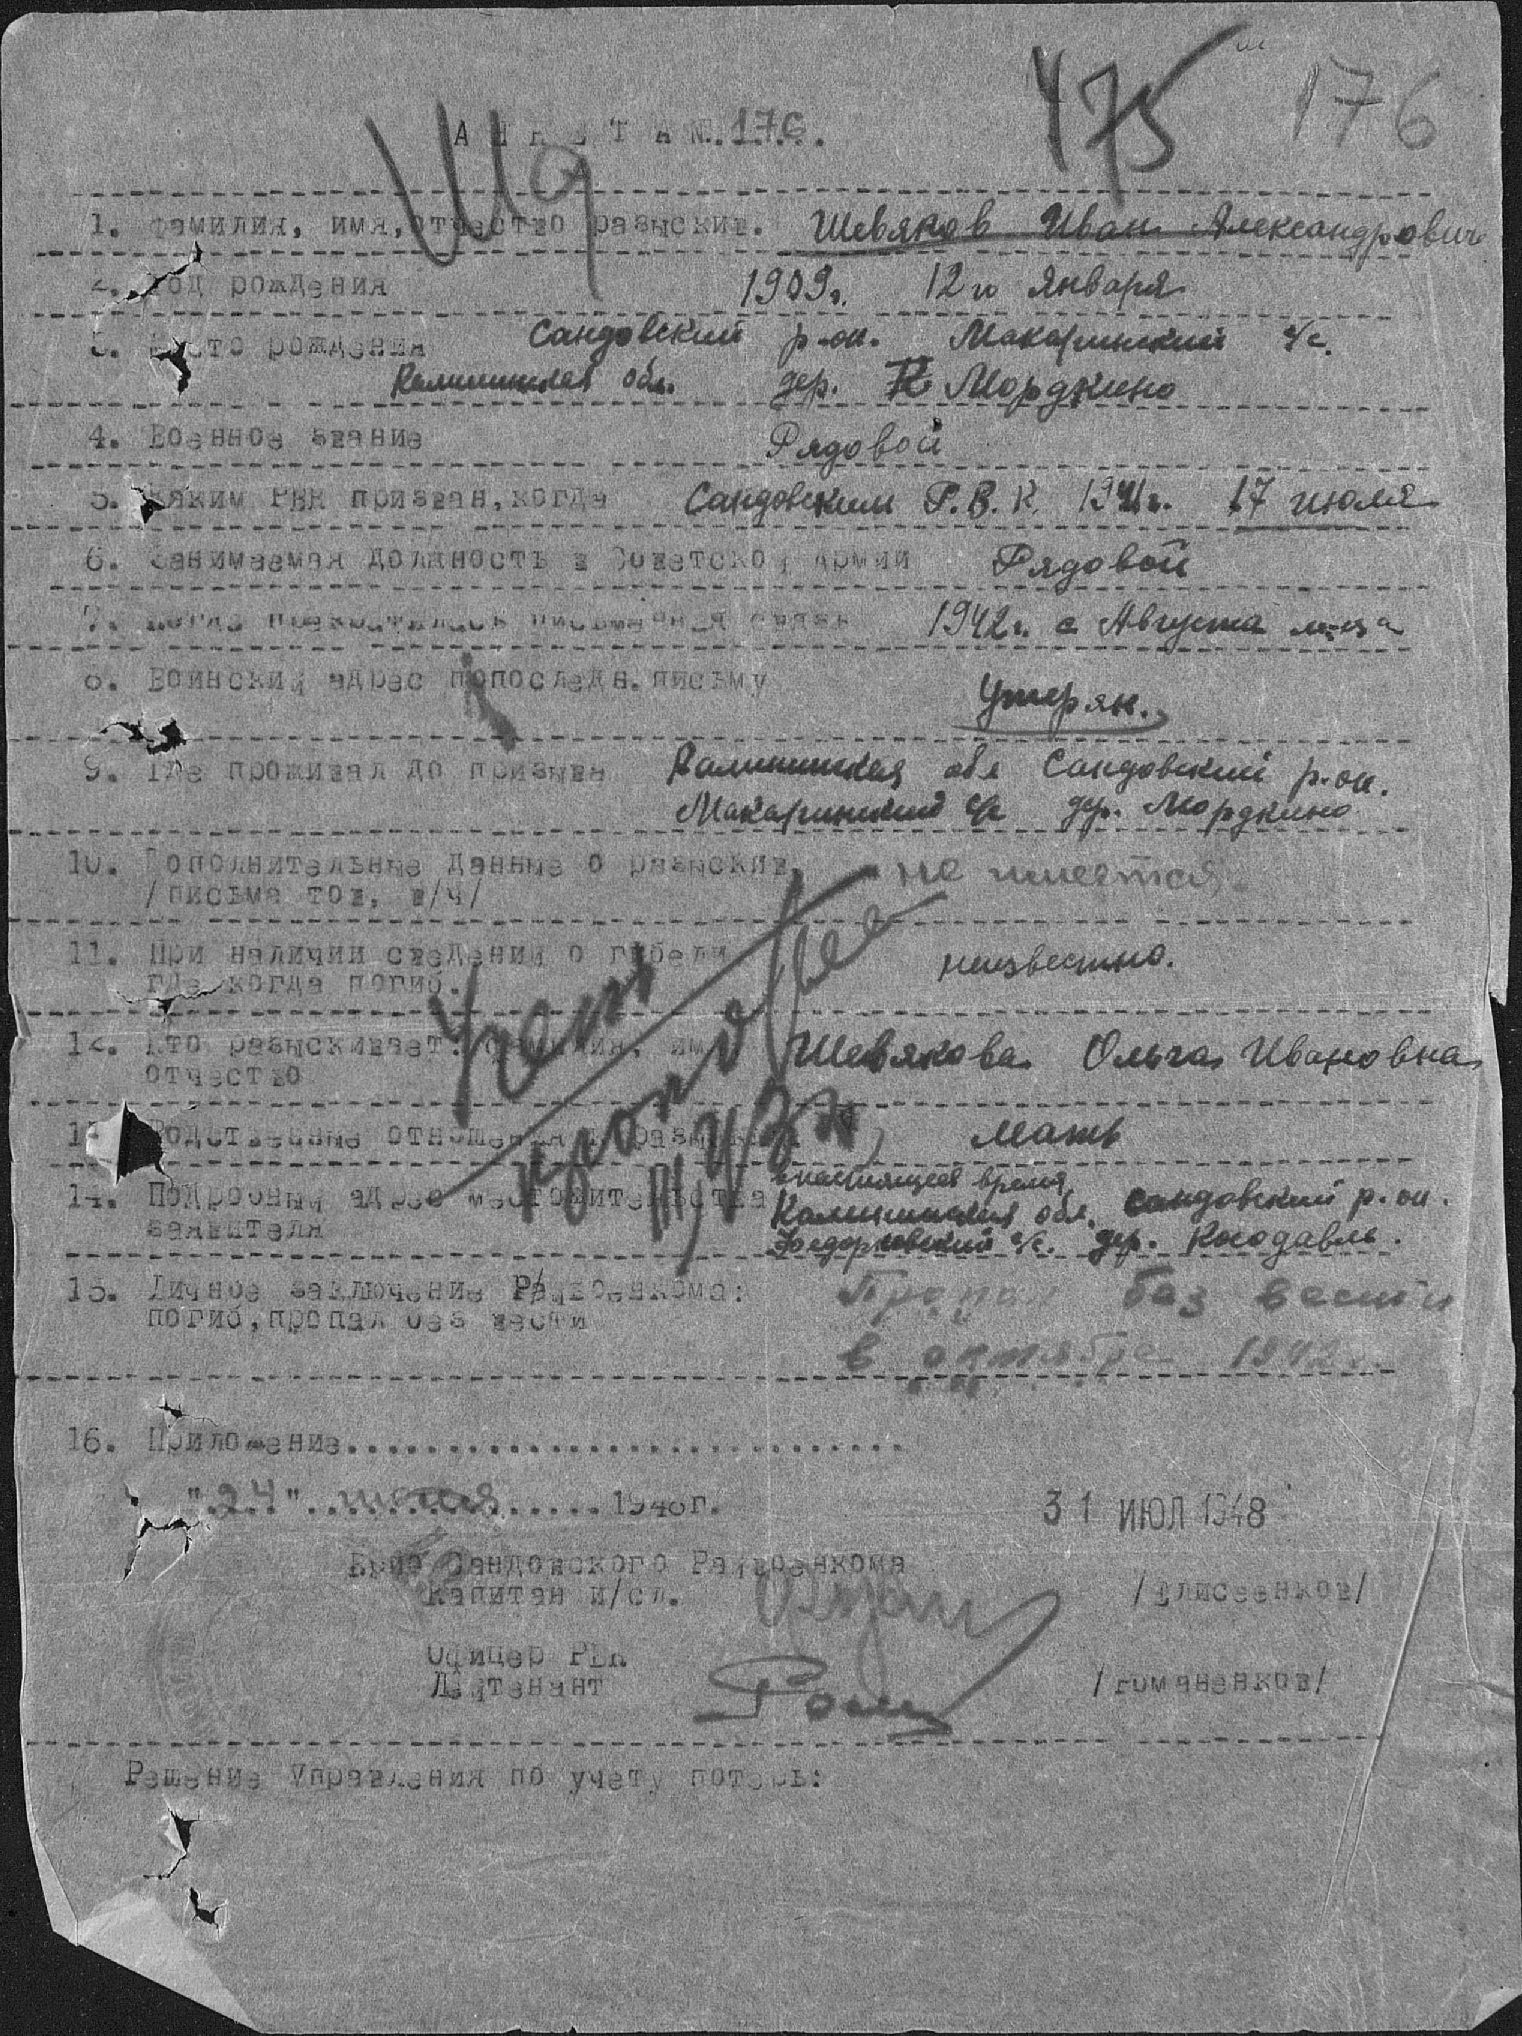 475
176
Ша
АНКЕТА №.176.
1. Фамилия, имя, отчество разыскив. Шевяков Иван Александрович
2. Год рождения 1909г. 12го Января
3. Место рождения Сандовский р-он. Макаринский с/с.
Калининская обл. дер. Мордкино
4. Военное звание Рядовой
5. Каким РВК призван, когда Сандовским Р.В.К. 1941г. 17 июля
6. Занимаемая должность в Советской Армии Рядовой
7. Когда прекратилась письменная связь 1942г. с Августа м-ца
8. Воинский адрес попоследн. письму Утерян.
9. Где проживал до призыва Калининская обл Сандовский р-он.
Макаринский с/с дер. Мордкино
10. Дополнительные данные о разыскив. не имеется
/письма тов, в/ч/
11. При наличии сведений о гибели неизвестно.
где когда погиб.
12. Кто разыскивает: фамилия, имя Шевякова Ольга Ивановна
отчество
13. Родственные отношения к разыскив Мать
14. Подробный адрес местожительства в настоящее время
заявителя Калининская обл. Сандовский р-он.
дер. Косодавль.
15. Личное заключение Райвоенкома: Пропал без вести
погиб, пропал без вести в октябре 1942г.
16. Приложение..............................
"24" июля 1948г.
31 ИЮЛ 1948
Врио Сандовского Райвоенкома
Капитан и/сл. /Елисеенков/
Офицер РВК
Лейтенант /Романенков/
Решение Управления по учету потерь: